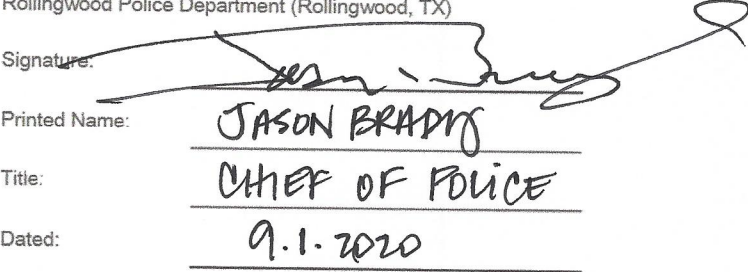 Rollingwood Police Department (Rollingwood, TX)
Signature:
Printed Name: JASON BRADY
Title: CHIEF OF POLICE
Dated: 9.1.2020